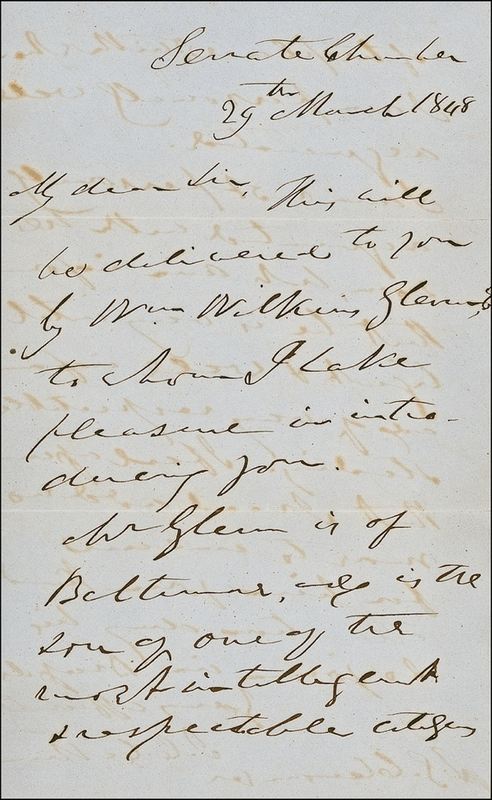 Senate Chamber
29th March 1848
My dear Sir, This will
be delivered to you
by Wm Wilkins Glenn,
to whom I take
pleasure in intro-
ducing you.
Mr Glenn is of
Baltimore, and is the
son of one of the
most intelligent
& respectable citizens